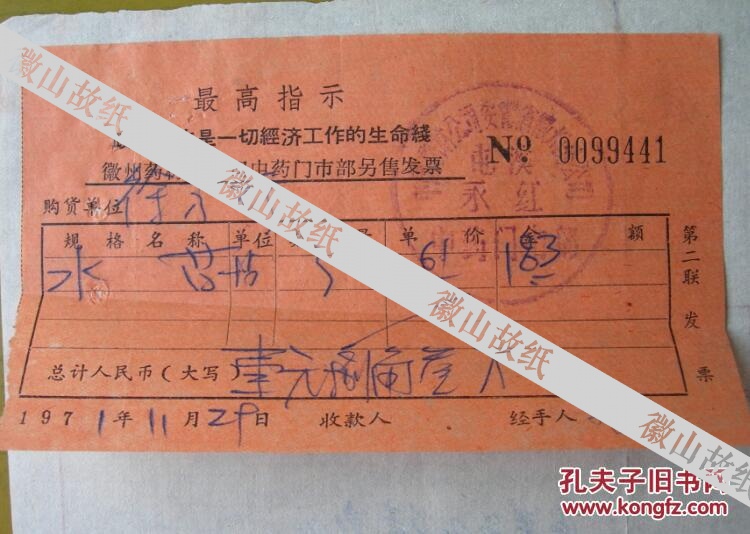 最高指示
是一切經济工作的生命綫
徽州药 中药门市部另售发票
№ 0099441
购货单位
规格名称 单位 单价 金额
水 61 183
总计人民币（大写）壹元捌角叁分
1971年11月29日 收款人 经手人
第二联发票
屯溪
永红
门
徽山故纸
徽山故纸
徽山故纸
徽山故纸
徽山故纸
孔夫子旧书网
www.kongfz.com